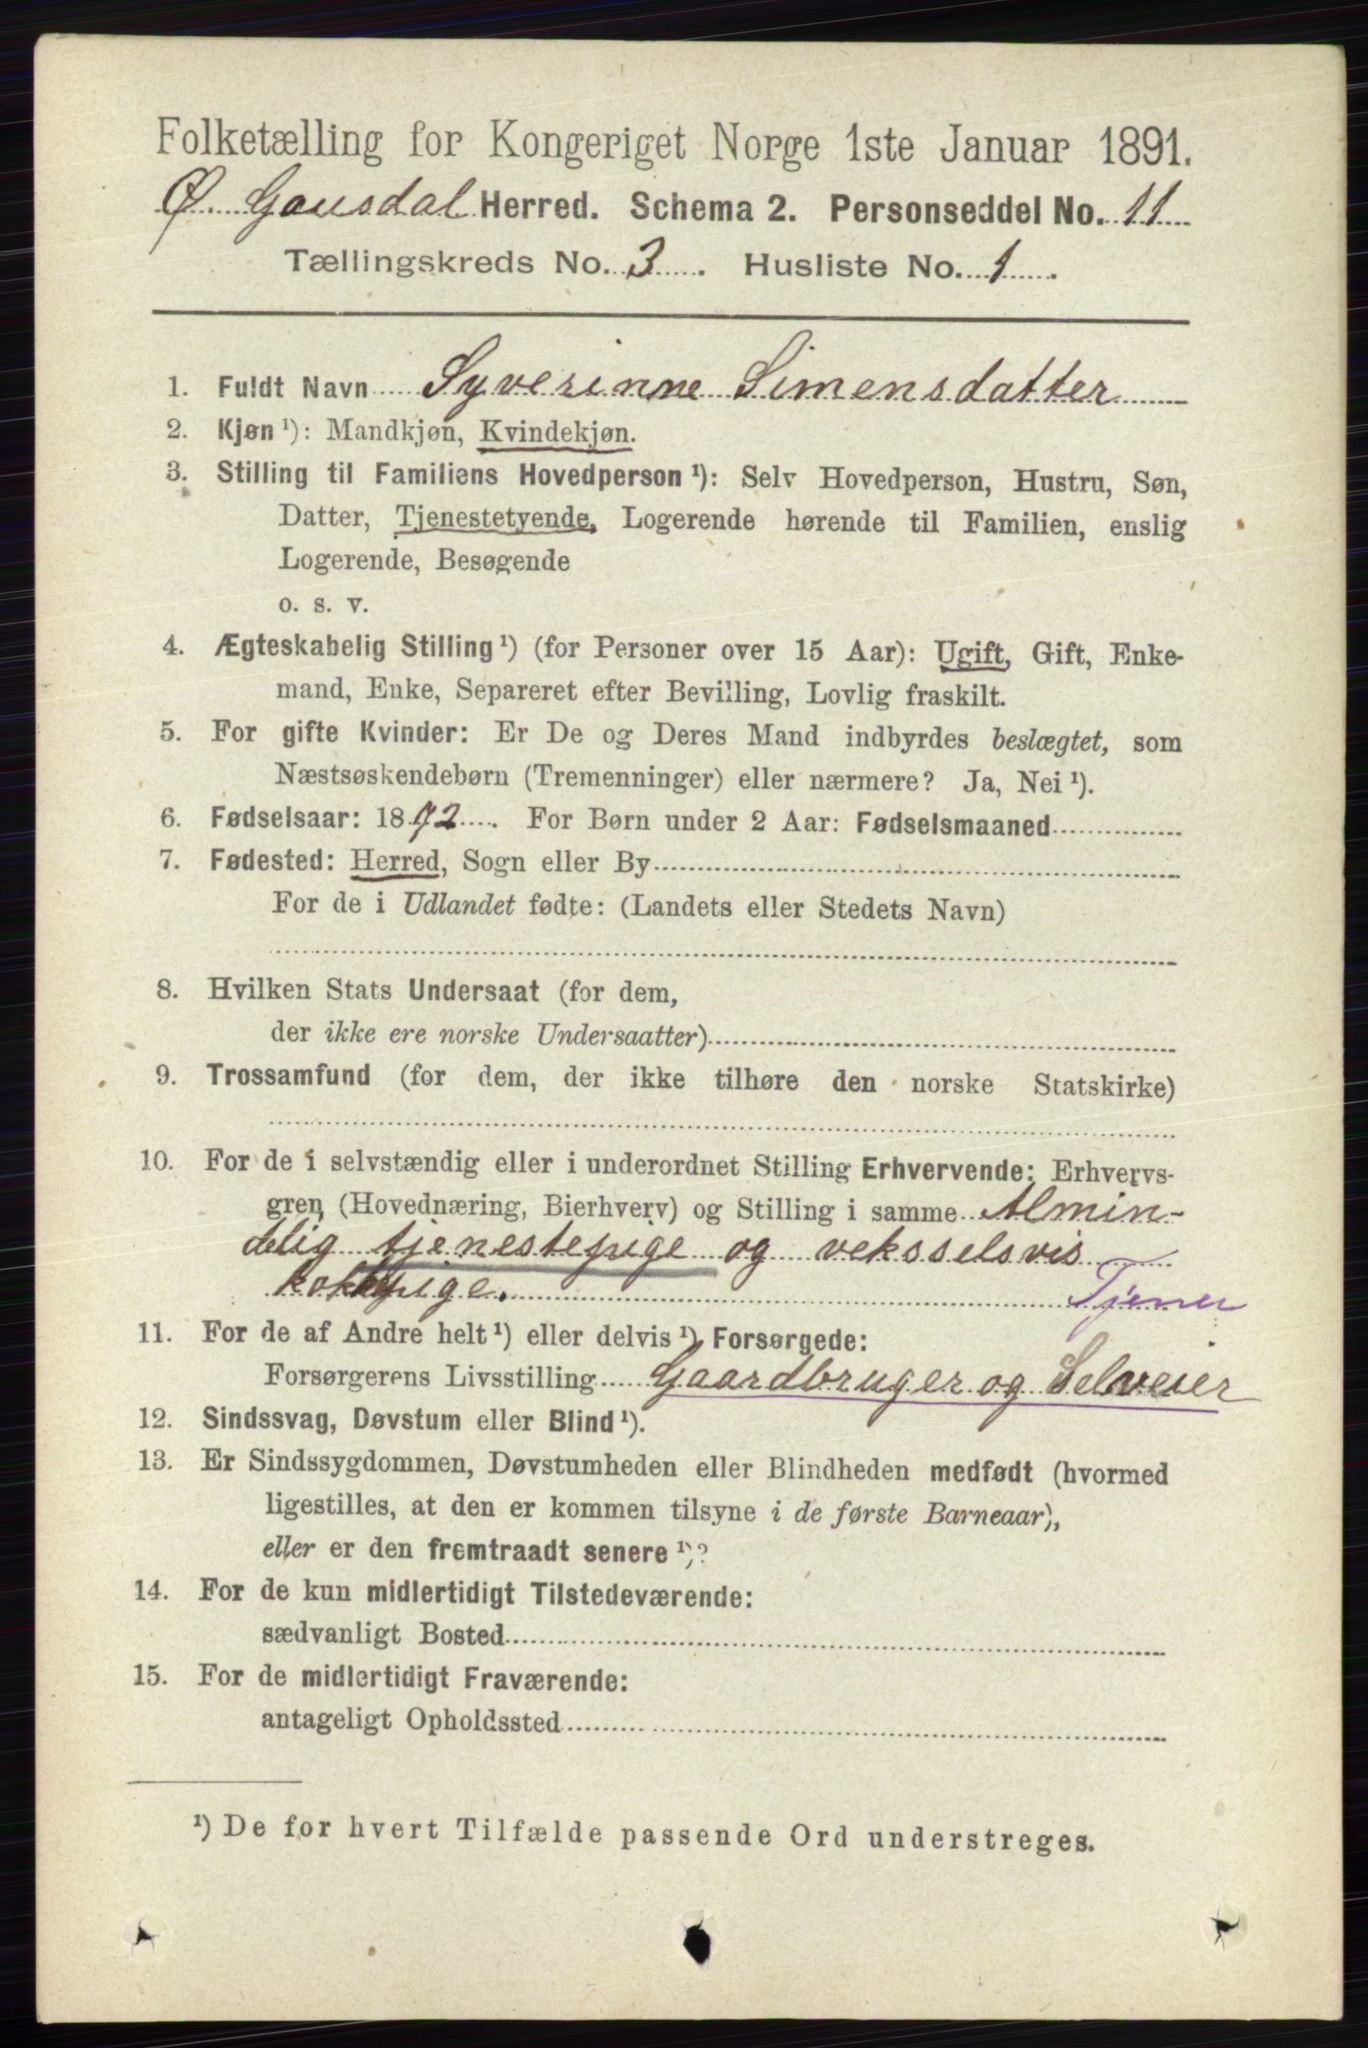 Folketælling for Kongeriget Norge 1ste Januar 1891.
Ø. Gausdal Herred. Schema 2. Personseddel No. 11
Tællingskreds No. 3. Husliste No. 1.
1. Fuldt Navn Syverinne Simensdatter
2. Kjøn ¹): Mandkjøn, Kvindekjøn.
3. Stilling til Familiens Hovedperson ¹): Selv Hovedperson, Hustru, Søn,
Datter, Tjenestetyende, Logerende hørende til Familien, enslig
Logerende, Besøgende
o. s. v.
4. Ægteskabelig Stilling ¹) (for Personer over 15 Aar): Ugift, Gift, Enke-
mand, Enke, Separeret efter Bevilling, Lovlig fraskilt.
5. For gifte Kvinder: Er De og Deres Mand indbyrdes beslægtet, som
Næstsøskendebørn (Tremenninger) eller nærmere? Ja, Nei ¹).
6. Fødselsaar: 1872. For Børn under 2 Aar: Fødselsmaaned
7. Fødested: Herred, Sogn eller By
For de i Udlandet fødte: (Landets eller Stedets Navn)
8. Hvilken Stats Undersaat (for dem,
der ikke ere norske Undersaatter)
9. Trossamfund (for dem, der ikke tilhøre den norske Statskirke)
10. For de i selvstændig eller i underordnet Stilling Erhvervende: Erhvervs-
gren (Hovednæring, Bierhverv) og Stilling i samme Almin-
delig tjenestepige og veksselsvis
kokkepige. Tjener
11. For de af Andre helt ¹) eller delvis ¹) Forsørgede:
Forsørgerens Livsstilling Gaardbruger og Selveier
12. Sindssvag, Døvstum eller Blind ¹).
13. Er Sindssygdommen, Døvstumheden eller Blindheden medfødt (hvormed
ligestilles, at den er kommen tilsyne i de første Barneaar),
eller er den fremtraadt senere ¹)?
14. For de kun midlertidigt Tilstedeværende:
sædvanligt Bosted
15. For de midlertidigt Fraværende:
antageligt Opholdssted
¹) De for hvert Tilfælde passende Ord understreges.